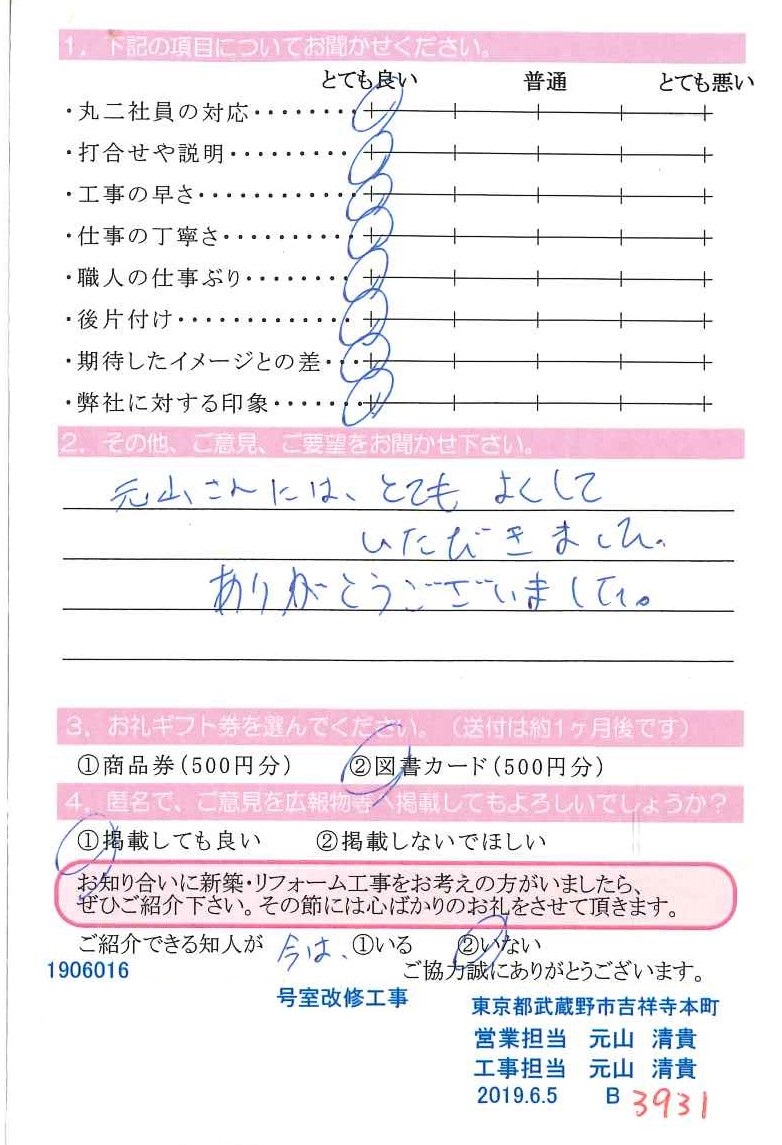 1. 下記の項目についてお聞かせください。
とても良い 普通 とても悪い
・丸二社員の対応・・・・・・・・
・打合せや説明・・・・・・・・・
・工事の早さ・・・・・・・・・・・
・仕事の丁寧さ・・・・・・・・・
・職人の仕事ぶり・・・・・・・・
・後片付け・・・・・・・・・・・・・
・期待したイメージとの差・・・
・弊社に対する印象・・・・・・・
2. その他、ご意見、ご要望をお聞かせ下さい。
元山さんには、とても よくして
いただきました。
ありがとうございました。
3. お礼ギフト券を選んでください。（送付は約1ヶ月後です）
①商品券（500円分） ②図書カード（500円分）
4. 匿名で、ご意見を広報物等へ掲載してもよろしいでしょうか？
①掲載しても良い ②掲載しないでほしい
お知り合いに新築・リフォーム工事をお考えの方がいましたら、
ぜひご紹介下さい。その節には心ばかりのお礼をさせて頂きます。
ご紹介できる知人が 今は、 ①いる ②いない
1906016 ご協力誠にありがとうございます。
号室改修工事 東京都武蔵野市吉祥寺本町
営業担当 元山 清貴
工事担当 元山 清貴
2019.6.5 B 3931